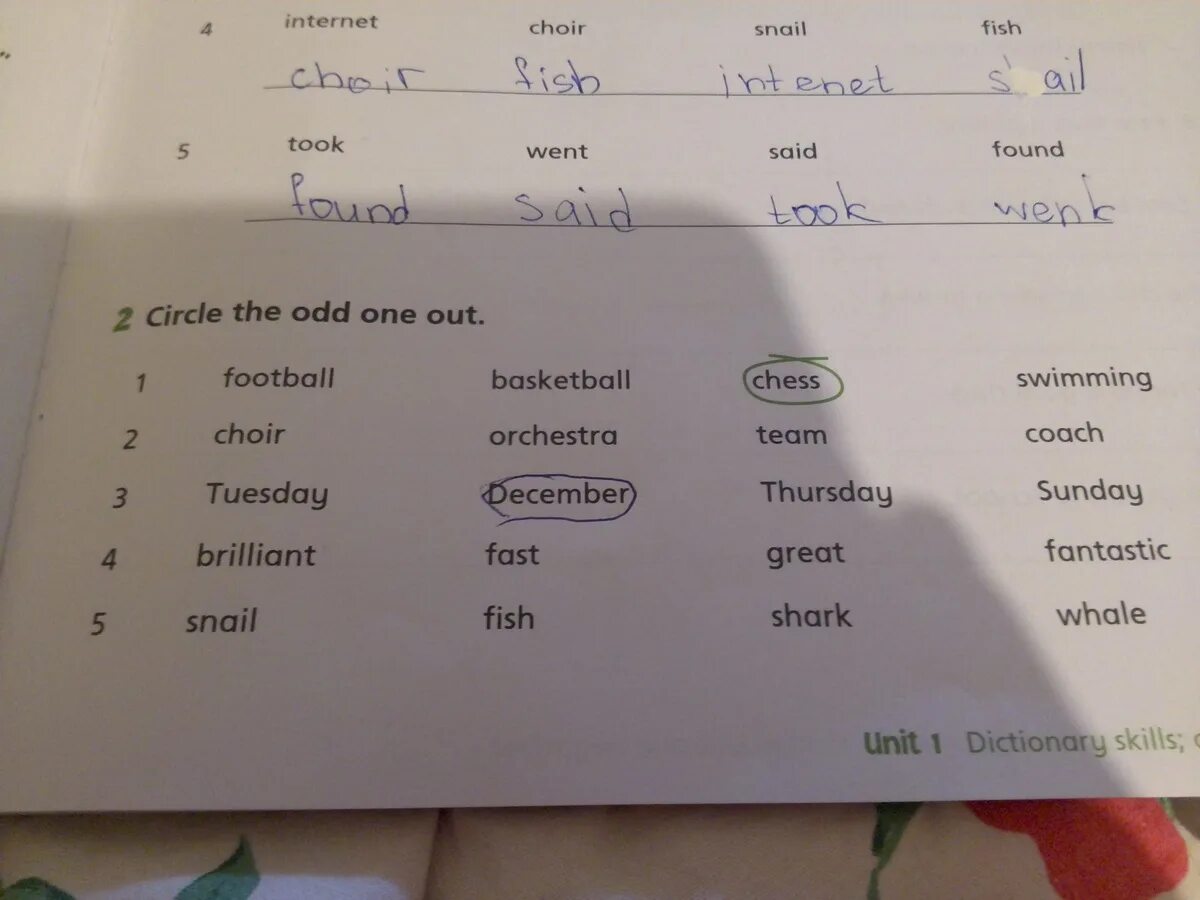 4 internet choir snail fish
choir fish intenet s ail
5 took went said found
found said took wenk
2 Circle the odd one out.
1 football basketball chess swimming
2 choir orchestra team coach
3 Tuesday December Thursday Sunday
4 brilliant fast great fantastic
5 snail fish shark whale
Unit 1 Dictionary skills;